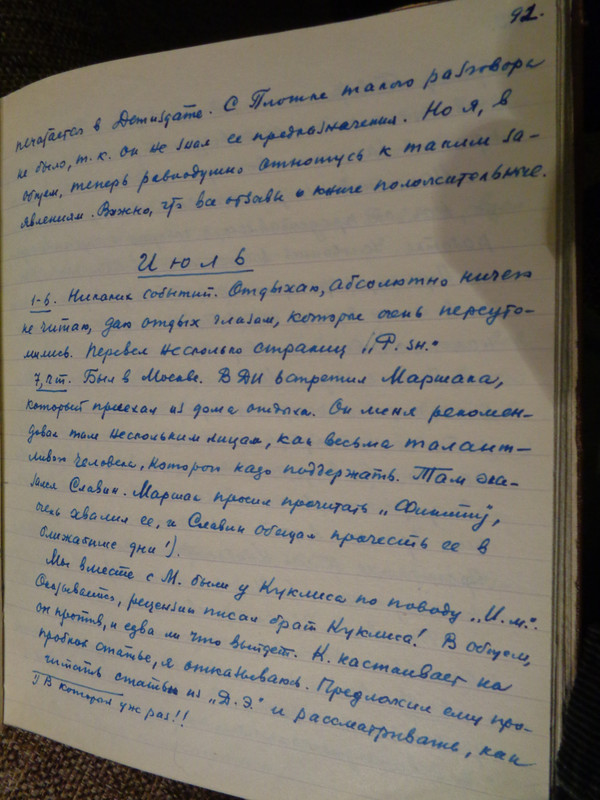 92.
печатается в Детиздате. С Плотке такого разговора
не было, т.к. он не знал ее предназначения. Но я, в
общем, теперь равнодушно отношусь к таким за-
явлениям. Важно, что все отзывы о книге положительные.
Июль
1-6. Никаких событий. Отдыхаю, абсолютно ничего
не читаю, даю отдых глазам, которые очень переуто-
мились. Перевел несколько страниц „Р. зн."
7, пт. Был в Москве. В ДИ встретил Маршака,
который приехал из дома отдыха. Он меня рекомен-
довал там нескольким лицам, как весьма талант-
ливого человека, которого надо поддержать. Там ока-
зался Славин. Маршак просил прочитать „
очень хвалил ее, и Славин обещал прочесть ее в
ближайшие дни¹).
Мы вместе с М. были у Куклиса по поводу „И.м.".
Оказывается, рецензии писал брат Куклиса! В общем,
он против, и едва ли что выйдет. К. настаивает на
пробной статье, я отказываюсь. Предложил ему про-
читать статьи из „Д.Э." и рассматривать, как
¹) В который уж раз!!